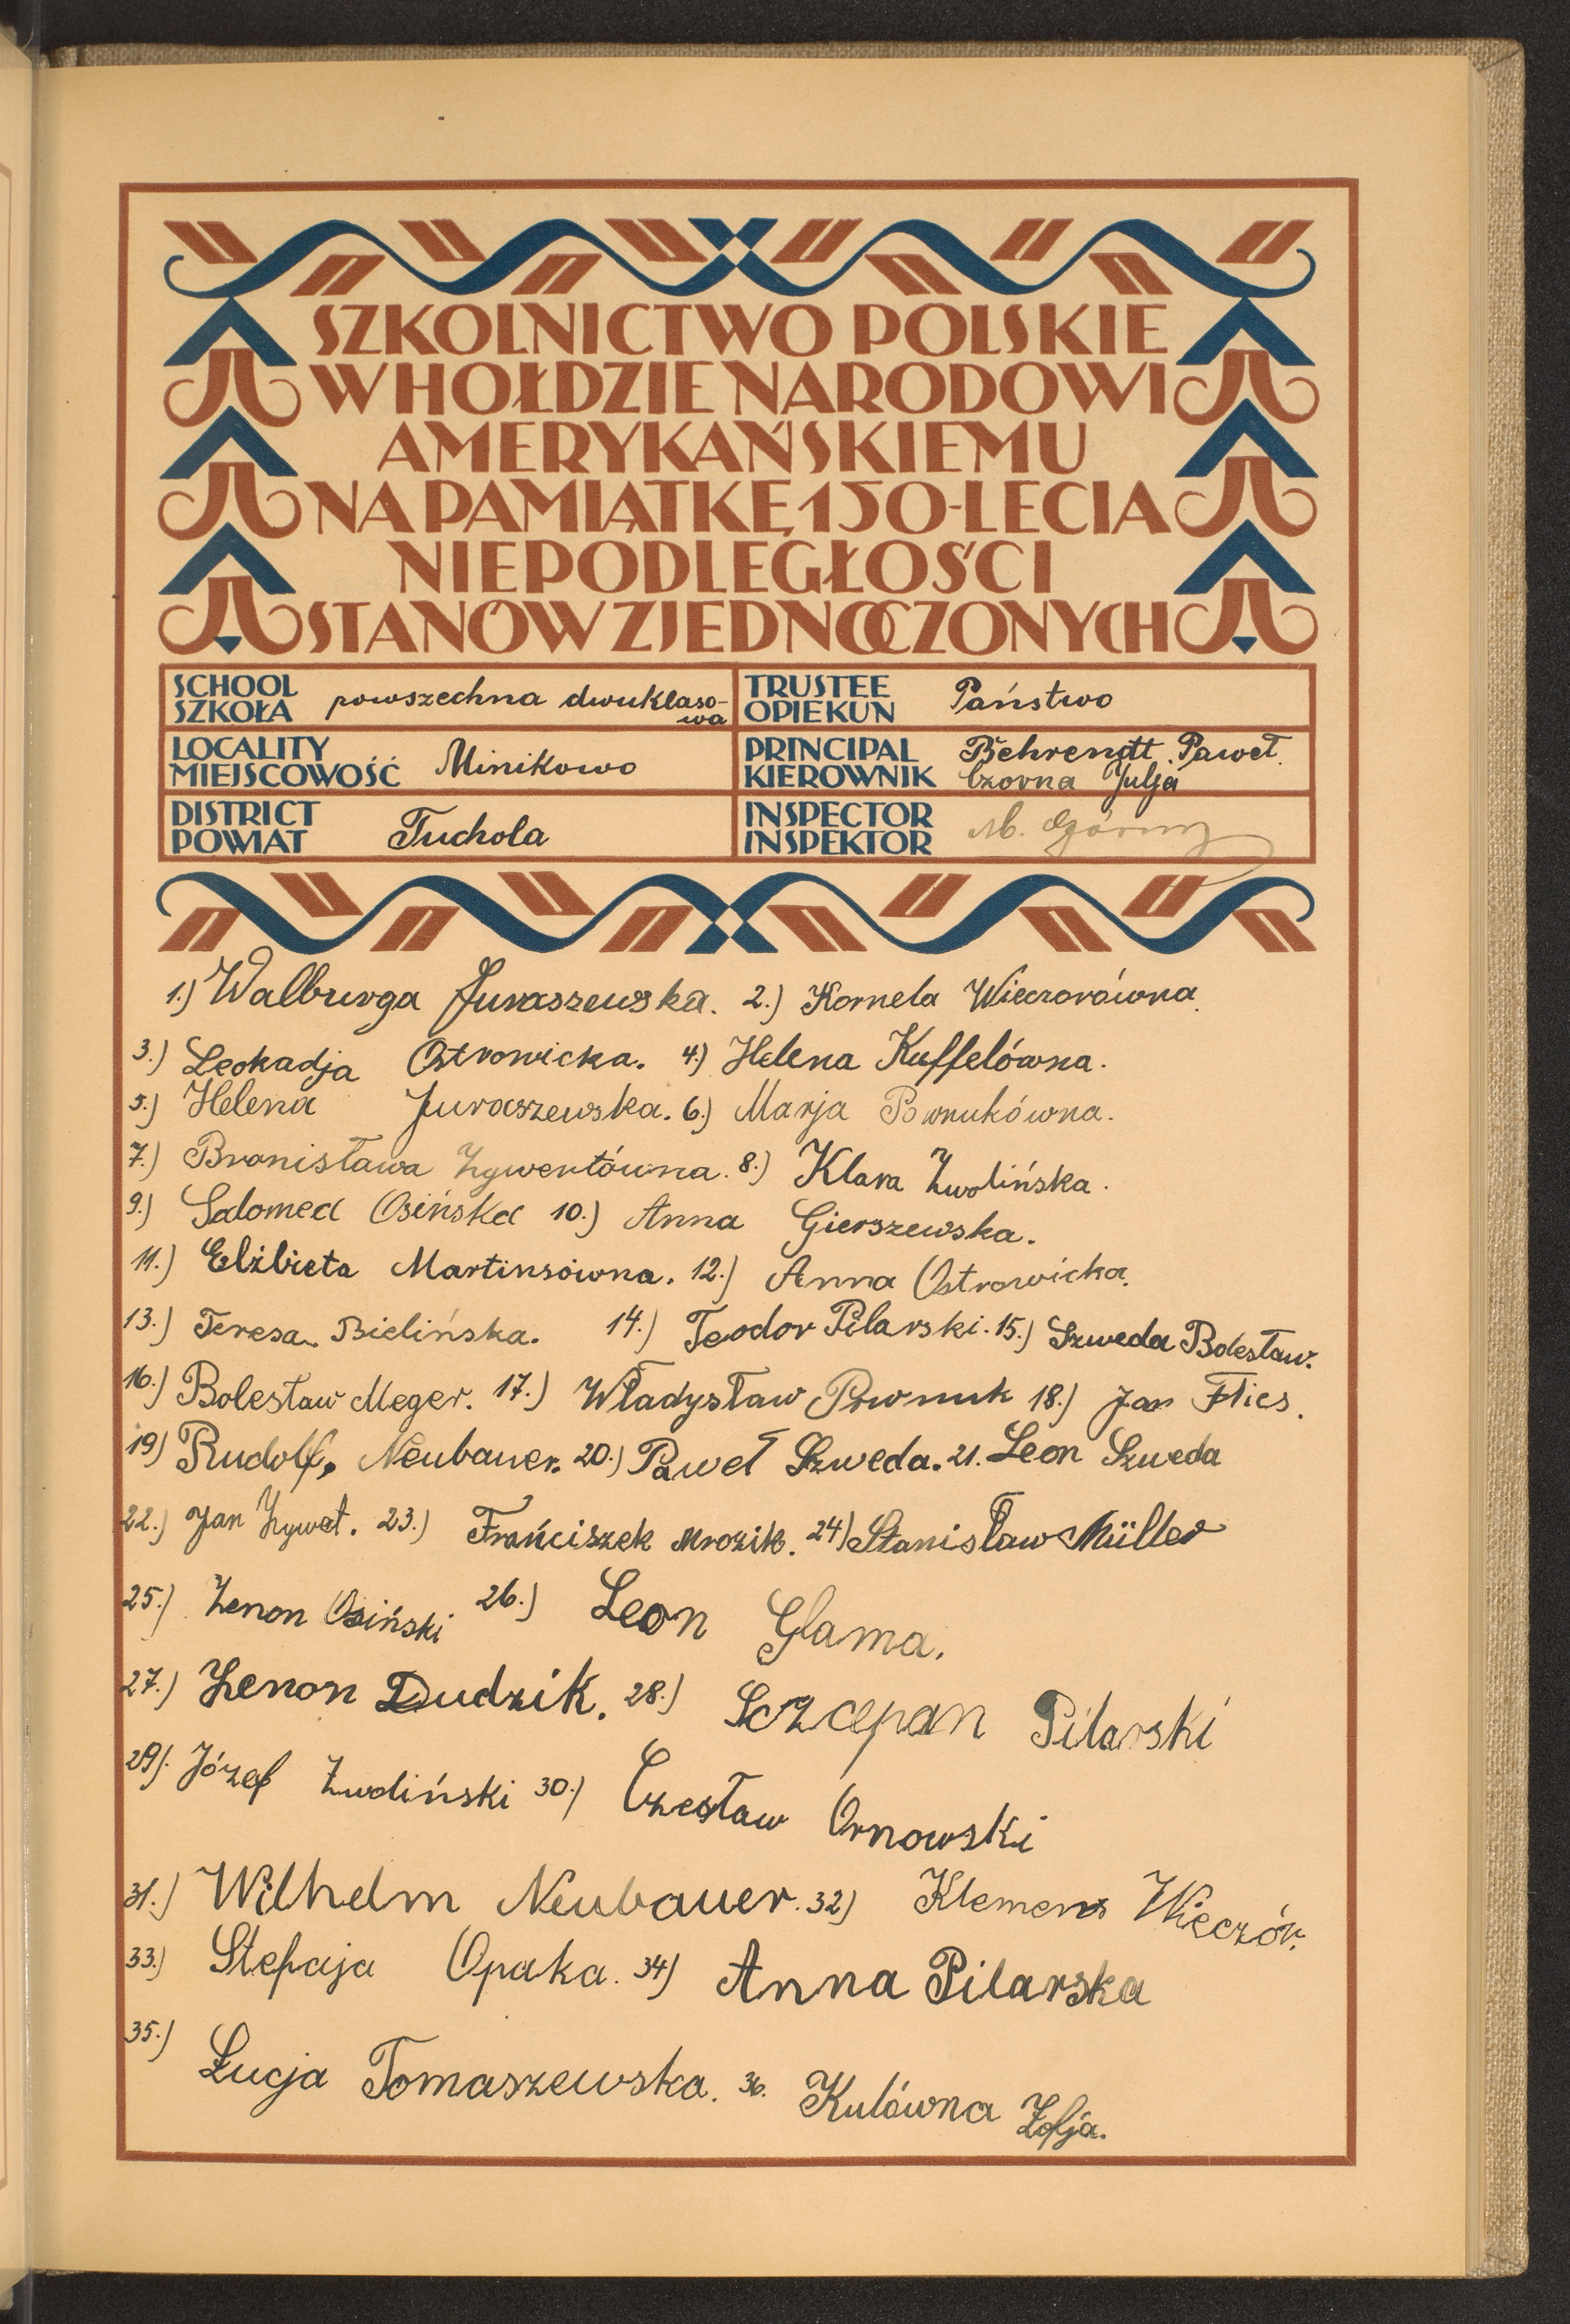 SZKOLNICTWO POLSKIE
W HOŁDZIE NARODOWI
AMERYKAŃSKIEMU
NA PAMIĄTKĘ 150-LECIA
NIEPODLEGŁOŚCI
STANÓW ZJEDNOCZONYCH
SCHOOL
SZKOŁA powszechna dwuklaso-
wa
TRUSTEE
OPIEKUN Państwo
LOCALITY
MIEJSCOWOŚĆ Minikowo
PRINCIPAL Behrendt Paweł
KIEROWNIK Czorna Julja
DISTRICT
POWIAT Tuchola
INSPECTOR
INSPEKTOR M.
1.) Walburga Juraszewska. 2.) Kornela Wieczorówna.
3.) Leokadja Ostrowicka. 4.) Helena Kuffelówna.
5.) Helena Juraszewska. 6.) Marja Pownukówna.
7.) Bronisława Zywertówna. 8.) Klara Zwolińska.
9.) Salomea Osińska 10.) Anna Gierszewska.
11.) Elżbieta Martinsówna. 12.) Anna Ostrowicka.
13.) Teresa Bielińska. 14.) Teodor Pilarski. 15.) Szweda Bolesław.
16.) Bolesław Meger. 17.) Władysław Pownuk 18.) Jan Flies.
19) Rudolf Neubauer. 20.) Paweł Szweda. 21. Leon Szweda
22.) Jan Zywet. 23.) Frańciszek Mrozik. 24) Stanisław Müller
25.) Zenon Osiński 26.) Leon Glama.
27.) Zenon Dudzik. 28.) Sczcepan Pilarski
29). Józef Zwoliński 30.) Czesław Ornowski
31.) Wilhelm Neubauer. 32) Klemens Wieczór.
33.) Stefaja Opaka. 34) Anna Pilarska
35.) Łucja Tomaszewska. 36. Kulówna Zofja.